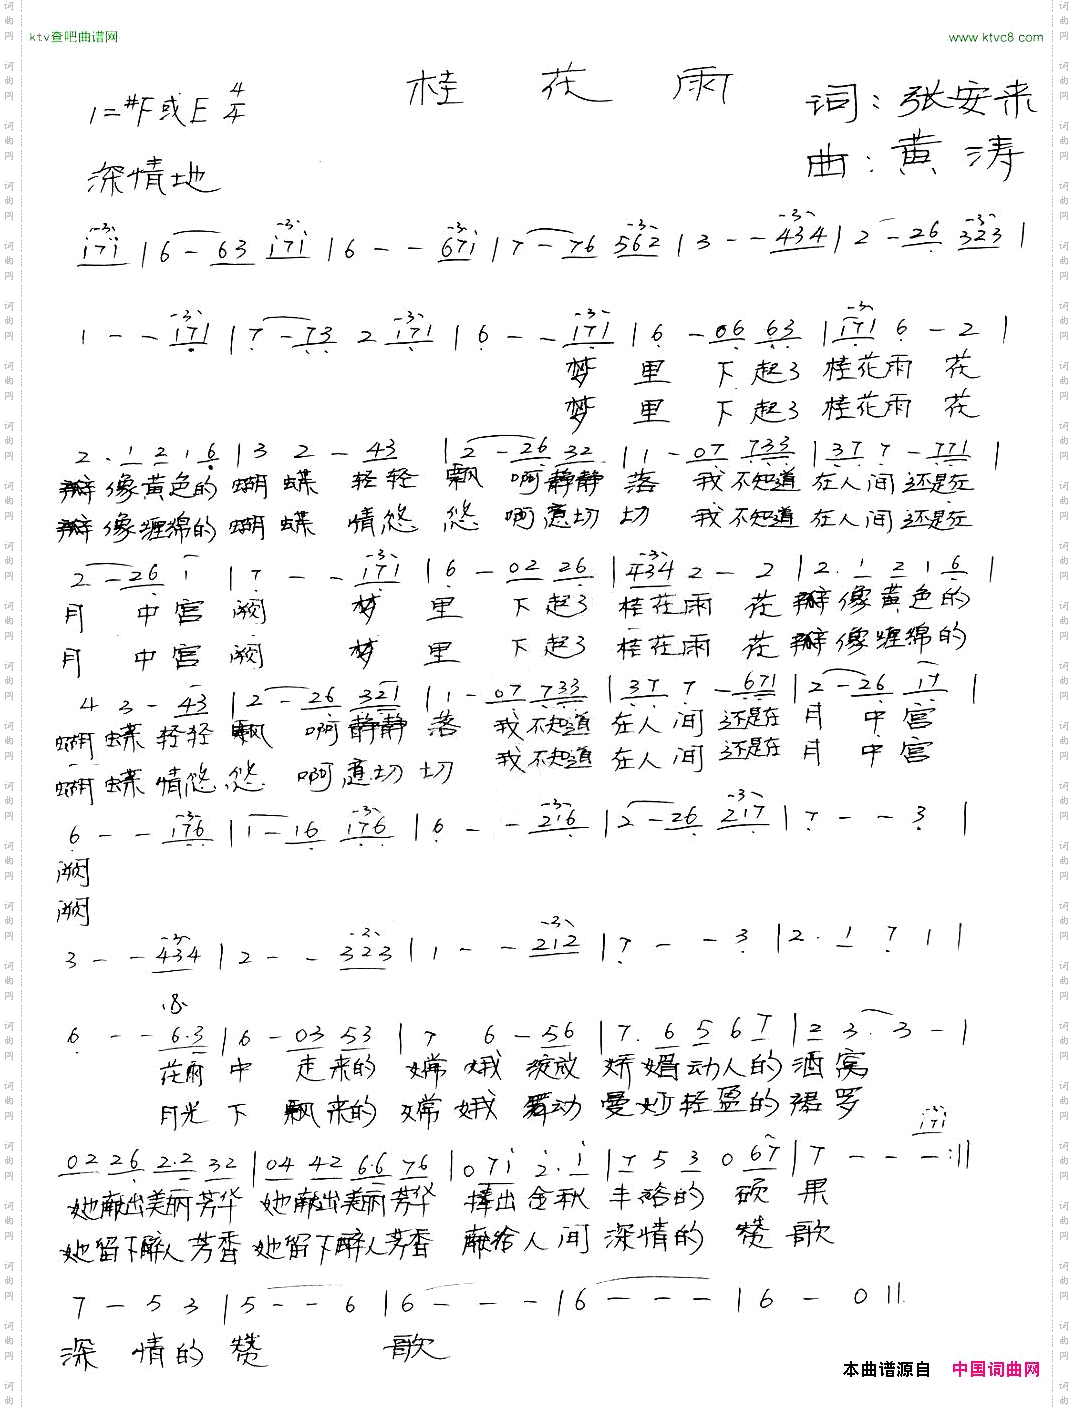 ktv查吧曲谱网
www.ktvc8.com
桂花雨
1=#F或E 4/4
词:张安来
曲:黄涛
深情地
i7i | 6 - 63 i7i | 6 - - 67i | 7 - 76 562 | 3 - - 434 | 2 - 26 323 |
1 - - i71 | 7 - 73 2 i71 | 6 - - i71 | 6 - 06 63 | i71 6 - 2 |
梦 里 下 起了 桂花雨 花
梦 里 下 起了 桂花雨 花
2. 1 2 1 6 | 3 2 - 43 | 2 - 26 32 | 1 - 07 733 | 37 7 - 771 |
瓣像黄色的蝴蝶 轻轻 飘 啊静静 落 我不知道 在人间 还是在
瓣像缠绵的蝴蝶 情悠 悠 啊意切 切 我不知道 在人间 还是在
2 - 26 1 | 7 - - i71 | 6 - 02 26 | 434 2 - 2 | 2. 1 2 1 6 |
月 中宫 阙 梦 里 下 起了 桂花雨 花 瓣像黄色的
月 中宫 阙 梦 里 下 起了 桂花雨 花 瓣像缠绵的
4 3 - 43 | 2 - 26 321 | 1 - 07 733 | 37 7 - 671 | 2 - 26 17 |
蝴蝶 轻轻 飘 啊静静 落 我不知道 在人间 还是在 月 中宫
蝴蝶 情悠 悠 啊意切 切 我不知道 在人间 还是在 月 中宫
6 - - 176 | 1 - 16 176 | 6 - - 216 | 2 - 26 217 | 7 - - 3 |
阙
阙
3 - - 434 | 2 - - 323 | 1 - - 212 | 7 - - 3 | 2. 1 7 1 |
6 - - 6.3 | 6 - 03 53 | 7 6 - 56 | 7. 6 5 6 7 | 2 3. 3 - |
花雨 中 走来的 嫦 娥 绽放 娇媚动人的 酒窝
月光 下 飘来的 嫦 娥 舞动 曼妙轻盈的 裙罗
i7i
02 26 2.2 32 | 04 42 6.6 76 | 0 7i 2. i | 7 5 3 0 67 | 7 - - - :||
她献出美丽芳华 她献出美丽芳华 捧出金秋 丰硌的 硕 果
她留下醉人芳香 她留下醉人芳香 献给人间 深情的 赞 歌
7 - 5 3 | 5 - - 6 | 6 - - - | 6 - - - | 6 - 0 ||
深 情的 赞 歌
本曲谱源自 中国词曲网